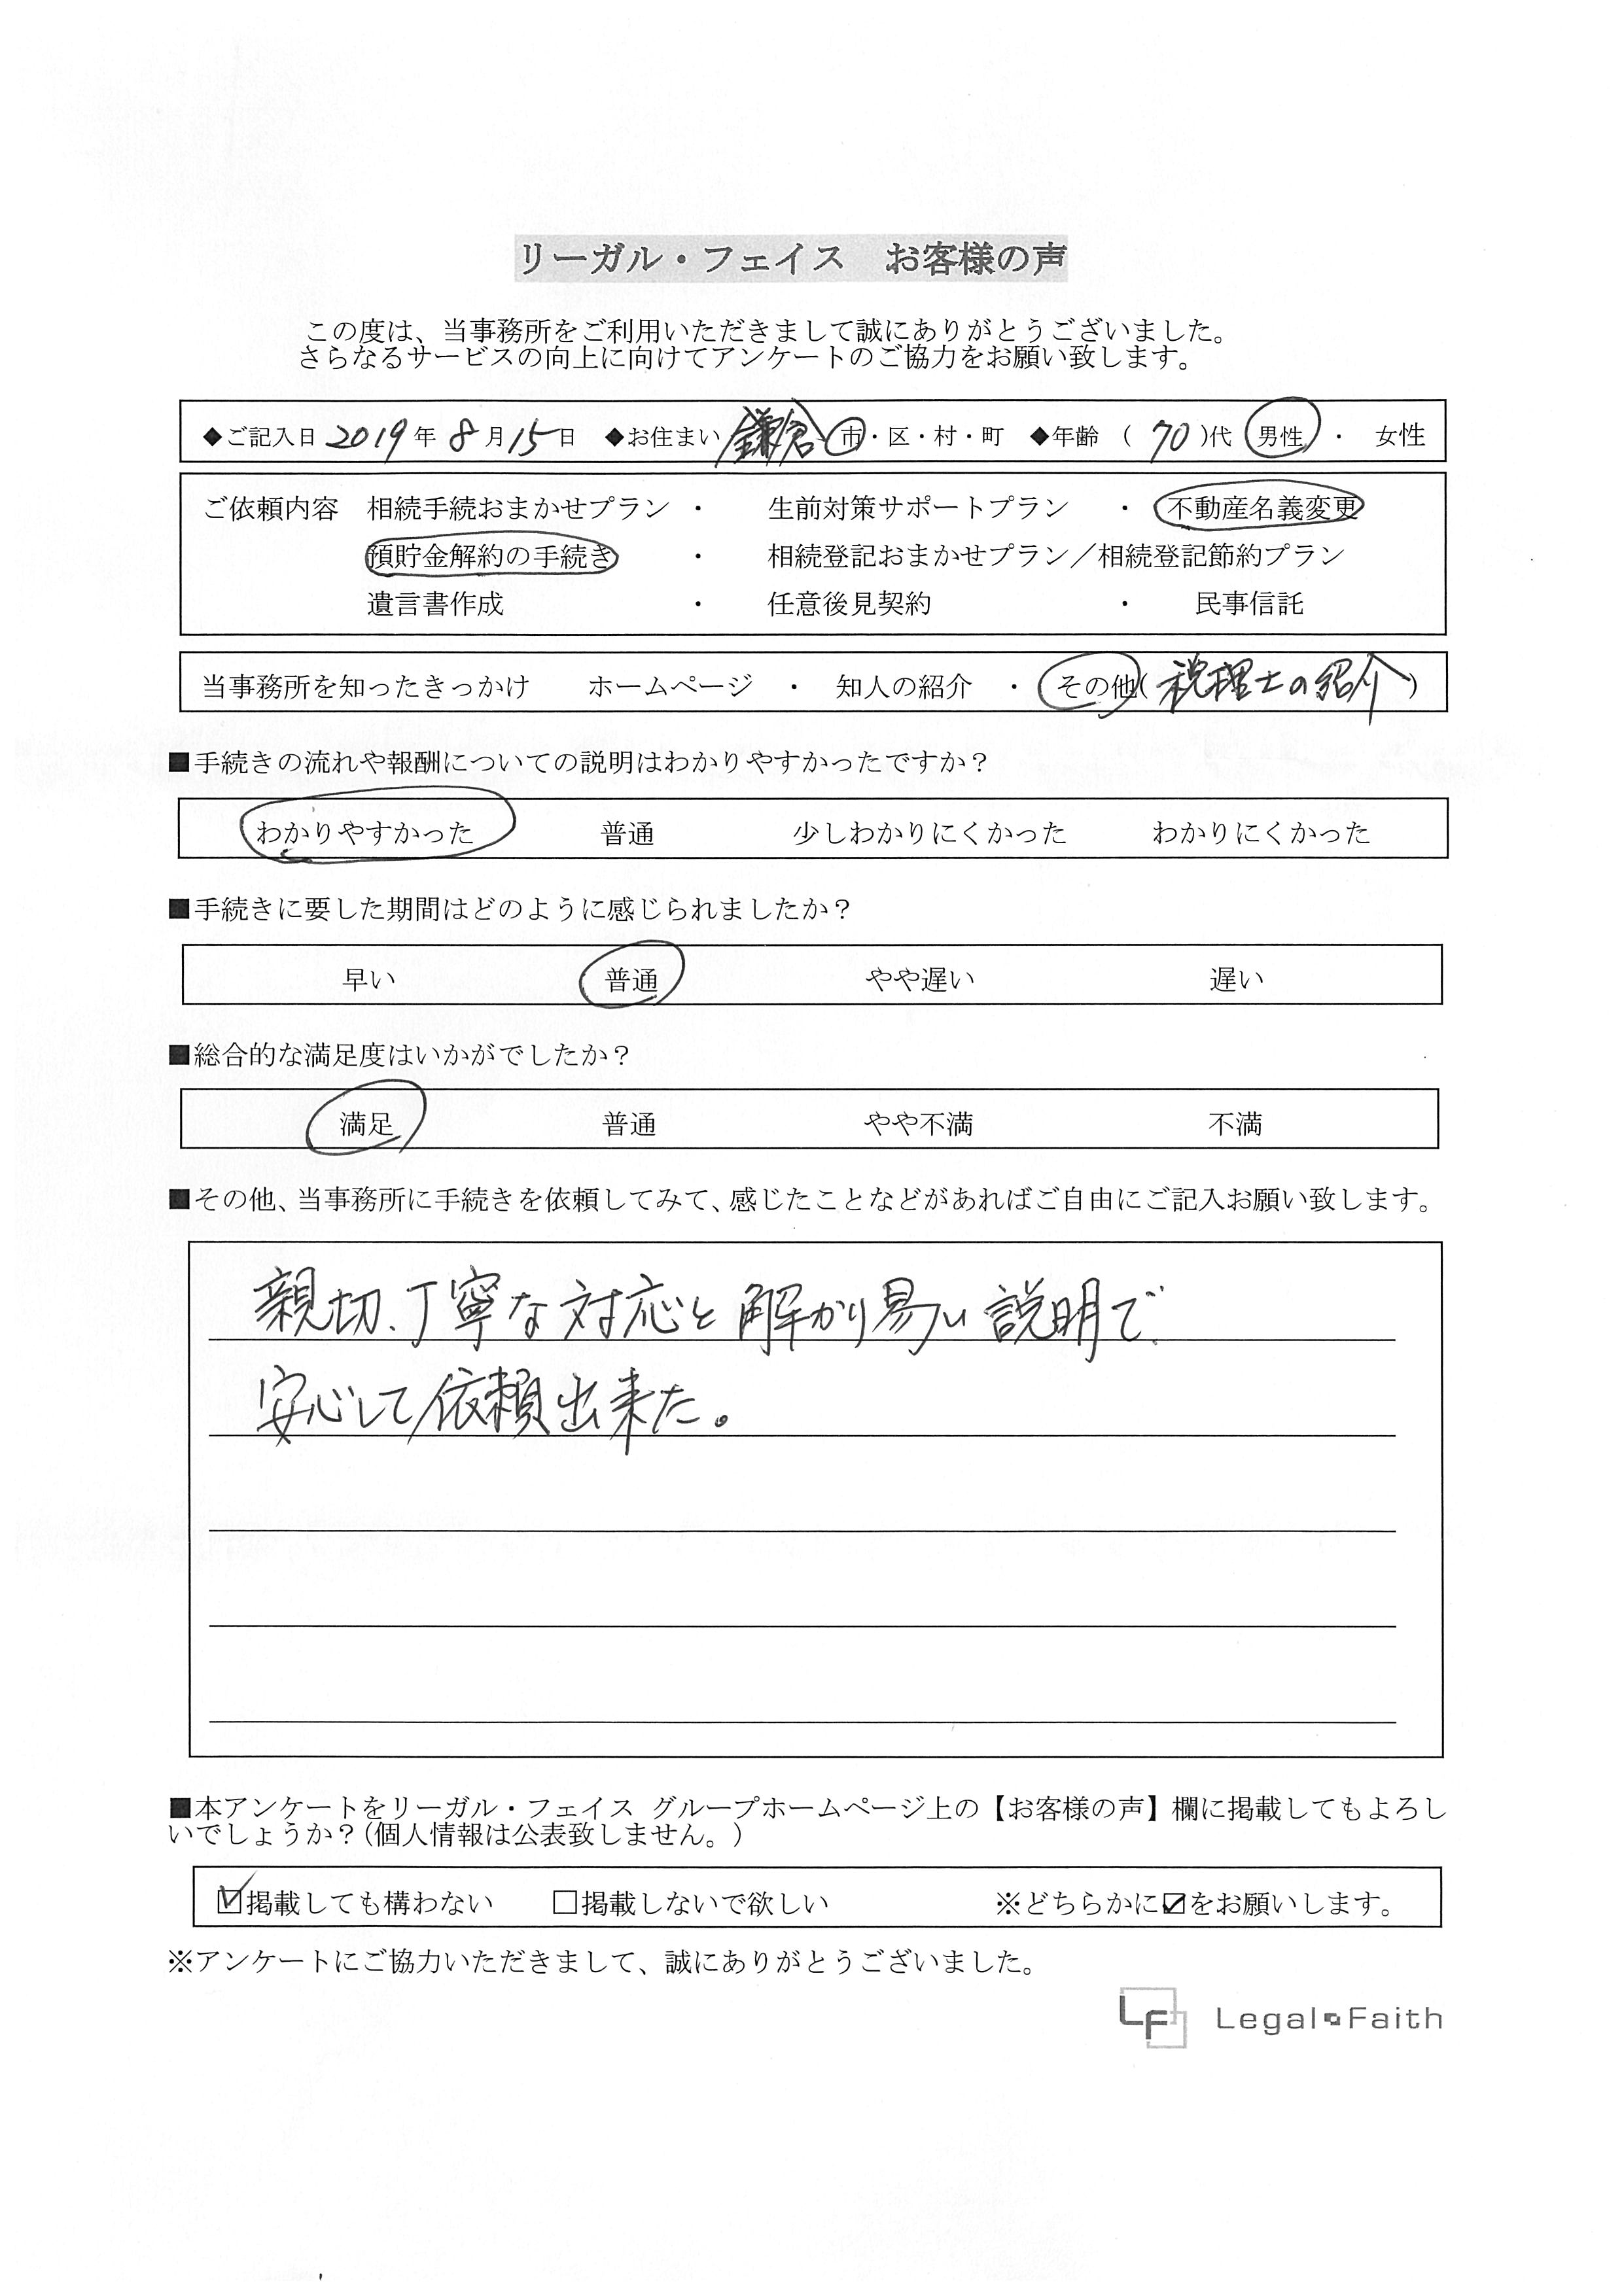 リーガル・フェイス　お客様の声
この度は、当事務所をご利用いただきまして誠にありがとうございました。
さらなるサービスの向上に向けてアンケートのご協力をお願い致します。
◆ご記入日 2019 年 8 月 15 日　◆お住まい 鎌倉 市・区・村・町　◆年齢 （ 70 ）代　男性 ・ 女性
ご依頼内容　相続手続おまかせプラン ・ 生前対策サポートプラン ・ 不動産名義変更
預貯金解約の手続き ・ 相続登記おまかせプラン／相続登記節約プラン
遺言書作成 ・ 任意後見契約 ・ 民事信託
当事務所を知ったきっかけ　ホームページ ・ 知人の紹介 ・ その他( 税理士の紹介 )
■手続きの流れや報酬についての説明はわかりやすかったですか？
わかりやすかった　普通　少しわかりにくかった　わかりにくかった
■手続きに要した期間はどのように感じられましたか？
早い　普通　やや遅い　遅い
■総合的な満足度はいかがでしたか？
満足　普通　やや不満　不満
■その他、当事務所に手続きを依頼してみて、感じたことなどがあればご自由にご記入お願い致します。
親切、丁寧な対応と解かり易い説明で
安心して依頼出来た。
■本アンケートをリーガル・フェイス グループホームページ上の【お客様の声】欄に掲載してもよろし
いでしょうか？(個人情報は公表致しません。)
☑掲載しても構わない　□掲載しないで欲しい　※どちらかに☑をお願いします。
※アンケートにご協力いただきまして、誠にありがとうございました。
LF Legal Faith